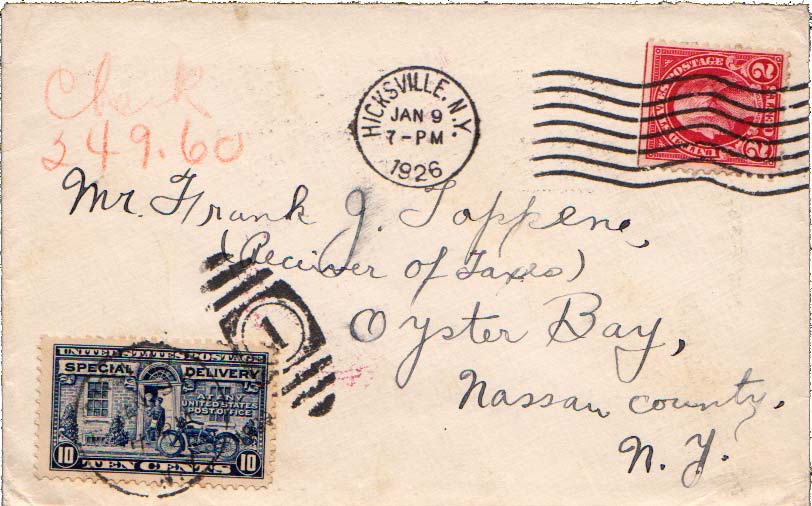 Check
249.60
HICKSVILLE, N.Y.
JAN 9
7-PM
1926
UNITED STATES POSTAGE
2 2
Mr. Frank J. Toppene,
(Reciever of Taxes)
Oyster Bay,
Nassau county,
N. Y.
1
UNITED STATES POSTAGE
SPECIAL DELIVERY
AT ANY
UNITED STATES
POST OFFICE
10 TEN CENTS 10